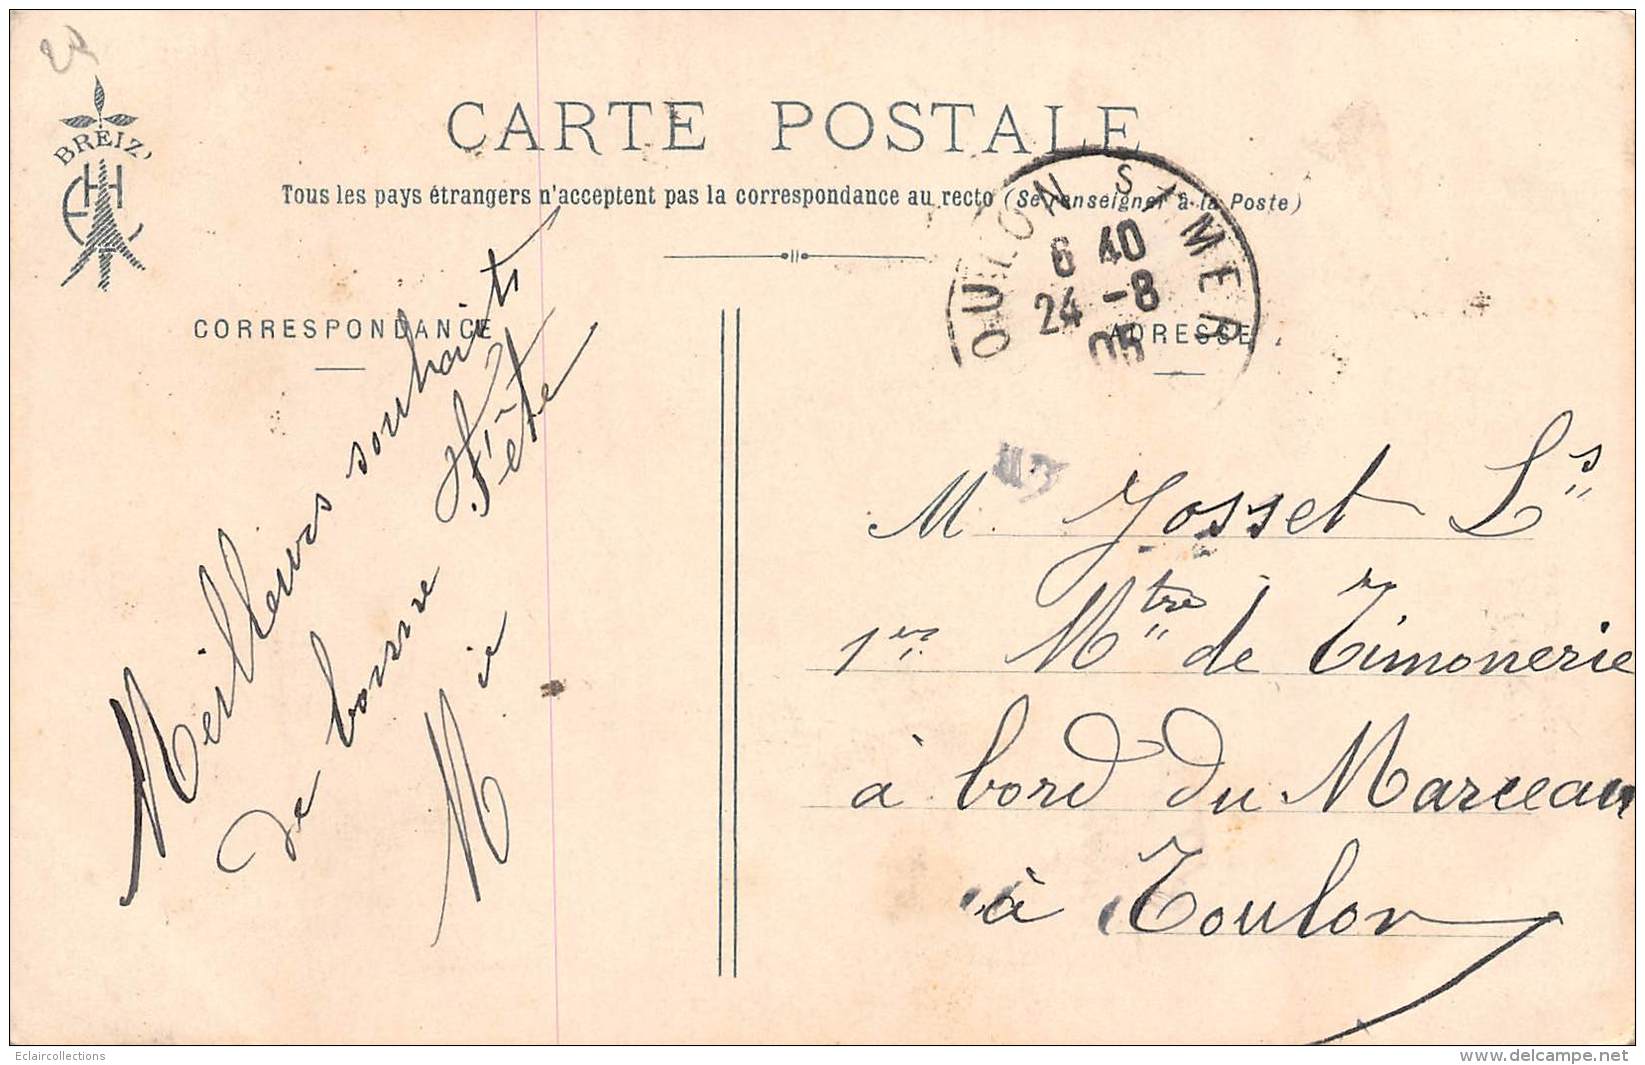 BREIZ
EHC
CARTE POSTALE
Tous les pays étrangers n'acceptent pas la correspondance au recto (Se renseigner à la Poste)
OULON S MER
6 40
24 -8
05
CORRESPONDANCE
ADRESSE
Meilleurs souhaits
de bonne Fête
M ie
M. Josset Ls
1er Mtre de Timonerie
à bord du Marceau
à Toulon
Eclaircollections
www.delcampe.net